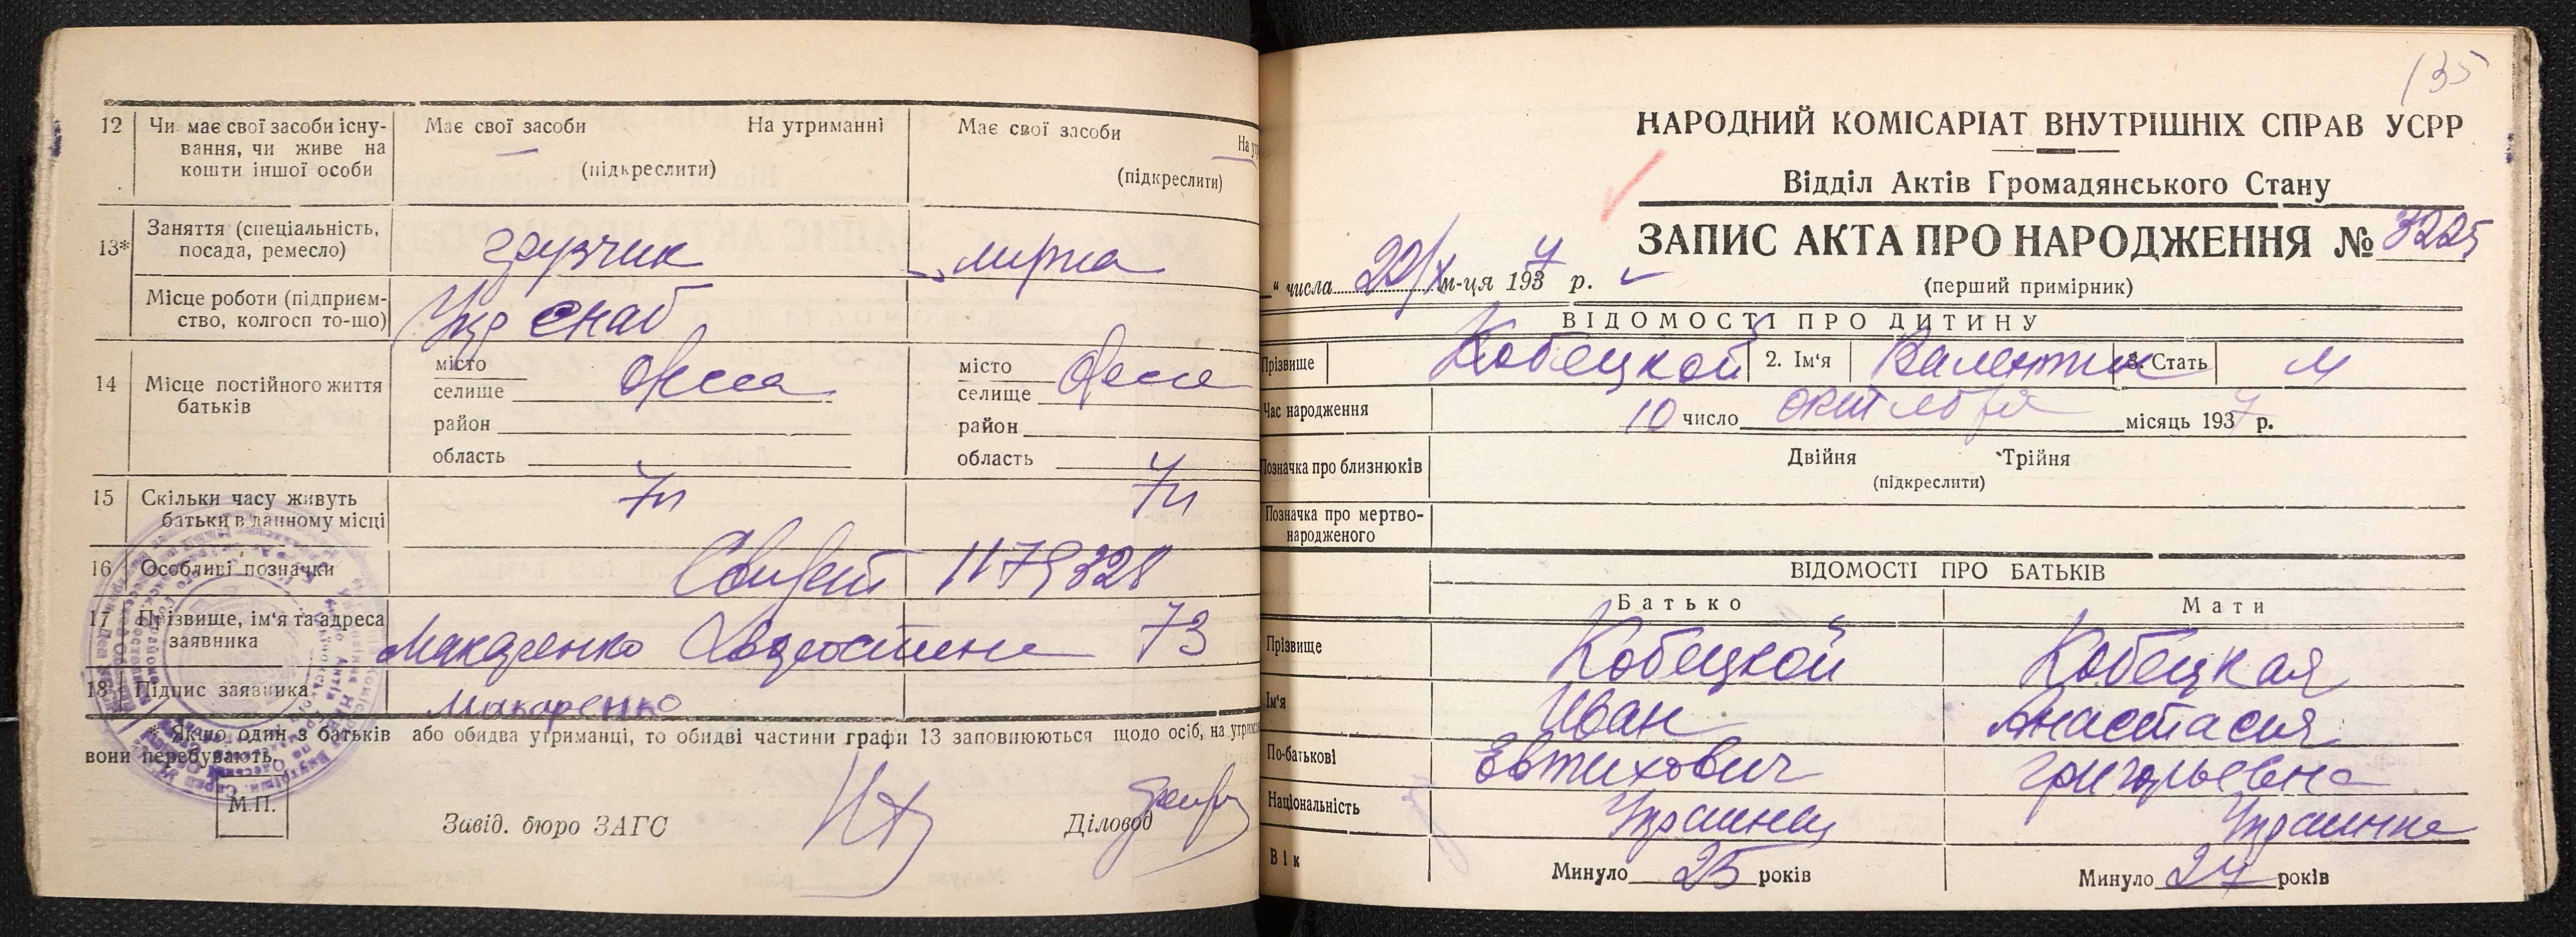 12 Чи має свої засоби існу-
вання, чи живе на
кошти іншої особи
Має свої засоби На утриманні
(підкреслити)
Має свої засоби На у
(підкреслити)
13* Заняття (спеціальність,
посада, ремесло)
грузчик
Місце роботи (підприєм-
ство, колгосп то-що)
Укр снаб
14 Місце постійного життя
батьків
місто
селище Одесса
район
область
місто
селище Одесса
район
область
15 Скільки часу живуть
батьки в данному місці
7л 7л
16 Особливі позначки
1179328
17 Прізвище, ім'я та адреса
заявника
Макаренко 73
18 Підпис заявника
Макаренко
* Якщо один з батьків або обидва утриманці, то обидві частини графи 13 заповнюються щодо осіб, на утрим
вони перебувають.
М.П.
Завід. бюро ЗАГС Діловод
135
НАРОДНИЙ КОМІСАРІАТ ВНУТРІШНІХ СПРАВ УСРР
Відділ Актів Громадянського Стану
ЗАПИС АКТА ПРО НАРОДЖЕННЯ № 3225
" числа 22/X м-ця 1937 р.
(перший примірник)
ВІДОМОСТІ ПРО ДИТИНУ
Прізвище Кобецкой 2. Ім'я Валентин 3. Стать М
Час народження 10 число октября місяць 1937 р.
Позначка про близнюків Двійня Трійня
(підкреслити)
Позначка про мертво-
народженого
ВІДОМОСТІ ПРО БАТЬКІВ
Батько Мати
Прізвище Кобецкой Кобецкая
Ім'я Иван Анастасия
По-батькові Евтихович Григорьевна
Національність Украинец Украинка
Вік Минуло 25 років Минуло 24 років